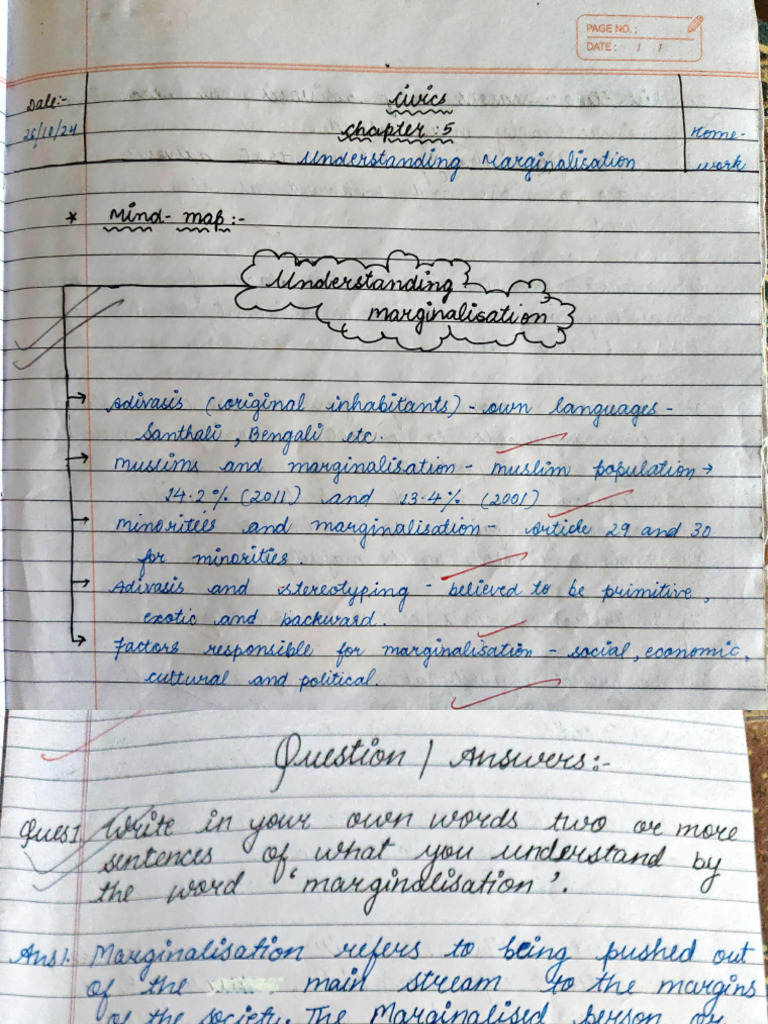 PAGE NO.:
DATE: / /
Date:-
Civics
Chapter : 5
Home-
Understanding Marginalisation
work
* Mind-map:-
Understanding
marginalisation
Adivasis (original inhabitants) - own languages -
Santhali, Bengali etc.
Muslims and marginalisation - muslim population →
14.2% (2011) and 13.4% (2001)
Minorities and marginalisation - Article 29 and 30
for minorities.
Adivasis and stereotyping - believed to be primitive,
exotic and backward.
Factors responsible for marginalisation - social, economic,
cultural and political.
Question / Answers:-
Ques1. Write in your own words two or more
sentences of what you understand by
the word 'marginalisation'.
Ans1. Marginalisation refers to being pushed out
of the main stream to the margins
of the society. The Marginalised person or